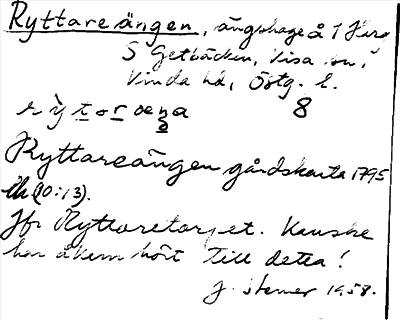 Ryttareängen, ängshage å 1 Hers
S Getbäcken, Visa
Vinda hd, Östg. l.
8
Ryttareängen gårdskarta 1795
(10:13).
Jfr Ryttaretorpet. Kanske
har åkern hört till detta!
J. Stemer 1958.